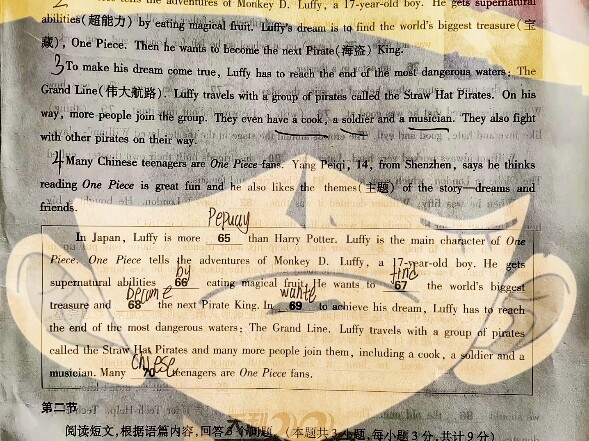 tells the adventures of Monkey D. Luffy, a 17-year-old boy. He gets supernatural
abilities(超能力) by eating magical fruit. Luffy's dream is to find the world's biggest treasure(宝
藏), One Piece. Then he wants to become the next Pirate(海盗) King.
3 To make his dream come true, Luffy has to reach the end of the most dangerous waters: The
Grand Line(伟大航路). Luffy travels with a group of pirates called the Straw Hat Pirates. On his
way, more people join the group. They even have a cook, a soldier and a musician. They also fight
with other pirates on their way.
4 Many Chinese teenagers are One Piece fans. Yang Peiqi, 14, from Shenzhen, says he thinks
reading One Piece is great fun and he also likes the themes(主题) of the story—dreams and
friends.
In Japan, Luffy is more 65 than Harry Potter. Luffy is the main character of One
Piece. One Piece tells the adventures of Monkey D. Luffy, a 17-year-old boy. He gets
by find
supernatural abilities 66 eating magical fruit. He wants to 67 the world's biggest
treasure and 68 the next Pirate King. In 69 to achieve his dream, Luffy has to reach
the end of the most dangerous waters: The Grand Line. Luffy travels with a group of pirates
called the Straw Hat Pirates and many more people join them, including a cook, a soldier and a
musician. Many 70 teenagers are One Piece fans.
第二节
阅读短文,根据语篇内容,回答 问题。(本题共3小题,每小题3分,共计9分)